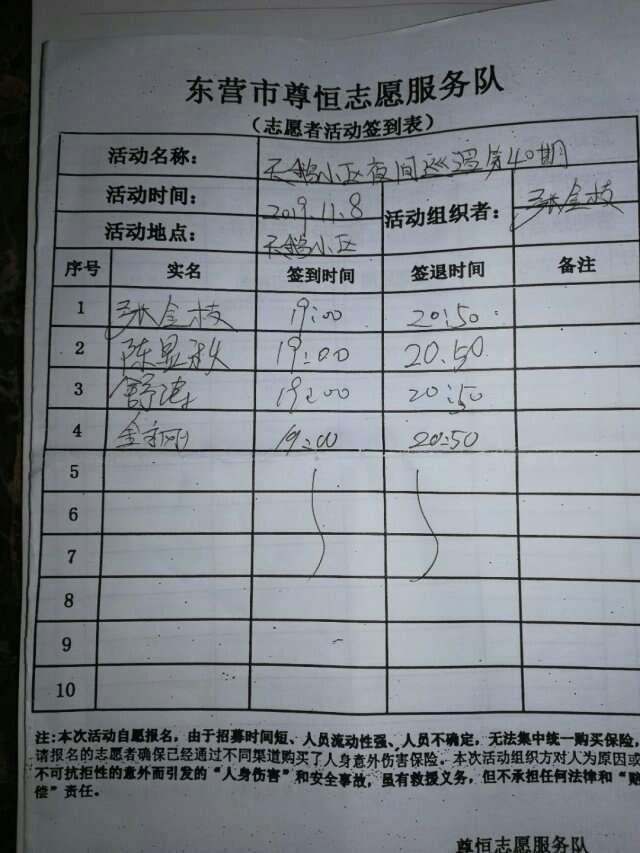 东营市尊恒志愿服务队
（志愿者活动签到表）
活动名称： 天鹅小区夜间巡逻第40期
活动时间： 2019.11.8 活动组织者： 张金枝
活动地点： 天鹅小区
序号 实名 签到时间 签退时间 备注
1 张金枝 19:00 20:50
2 陈显秋 19:00 20:50
3 舒涛 19:00 20:50
4 19:00 20:50
5
6
7
8
9
10
注:本次活动自愿报名，由于招募时间短、人员流动性强、人员不确定，无法集中统一购买保险，
请报名的志愿者确保己经通过不同渠道购买了人身意外伤害保险。本次活动组织方对人为原因或
不可抗拒性的意外而引发的“人身伤害”和安全事故，虽有救援义务，但不承担任何法律和“赔
偿”责任。
尊恒志愿服务队